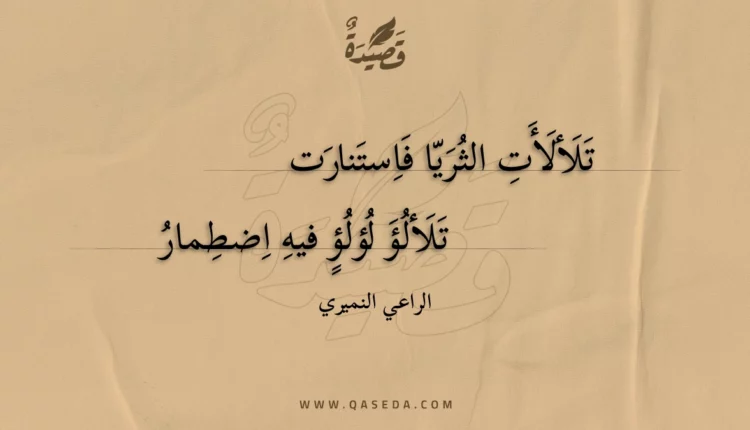 قَصِيدَةٌ
تَلَألَأَتِ الثُرَيّا فَاِستَنارَت
تَلَألُؤَ لُؤلُؤٍ فيهِ اِضطِمارُ
الراعي النميري
WWW.QASEDA.COM